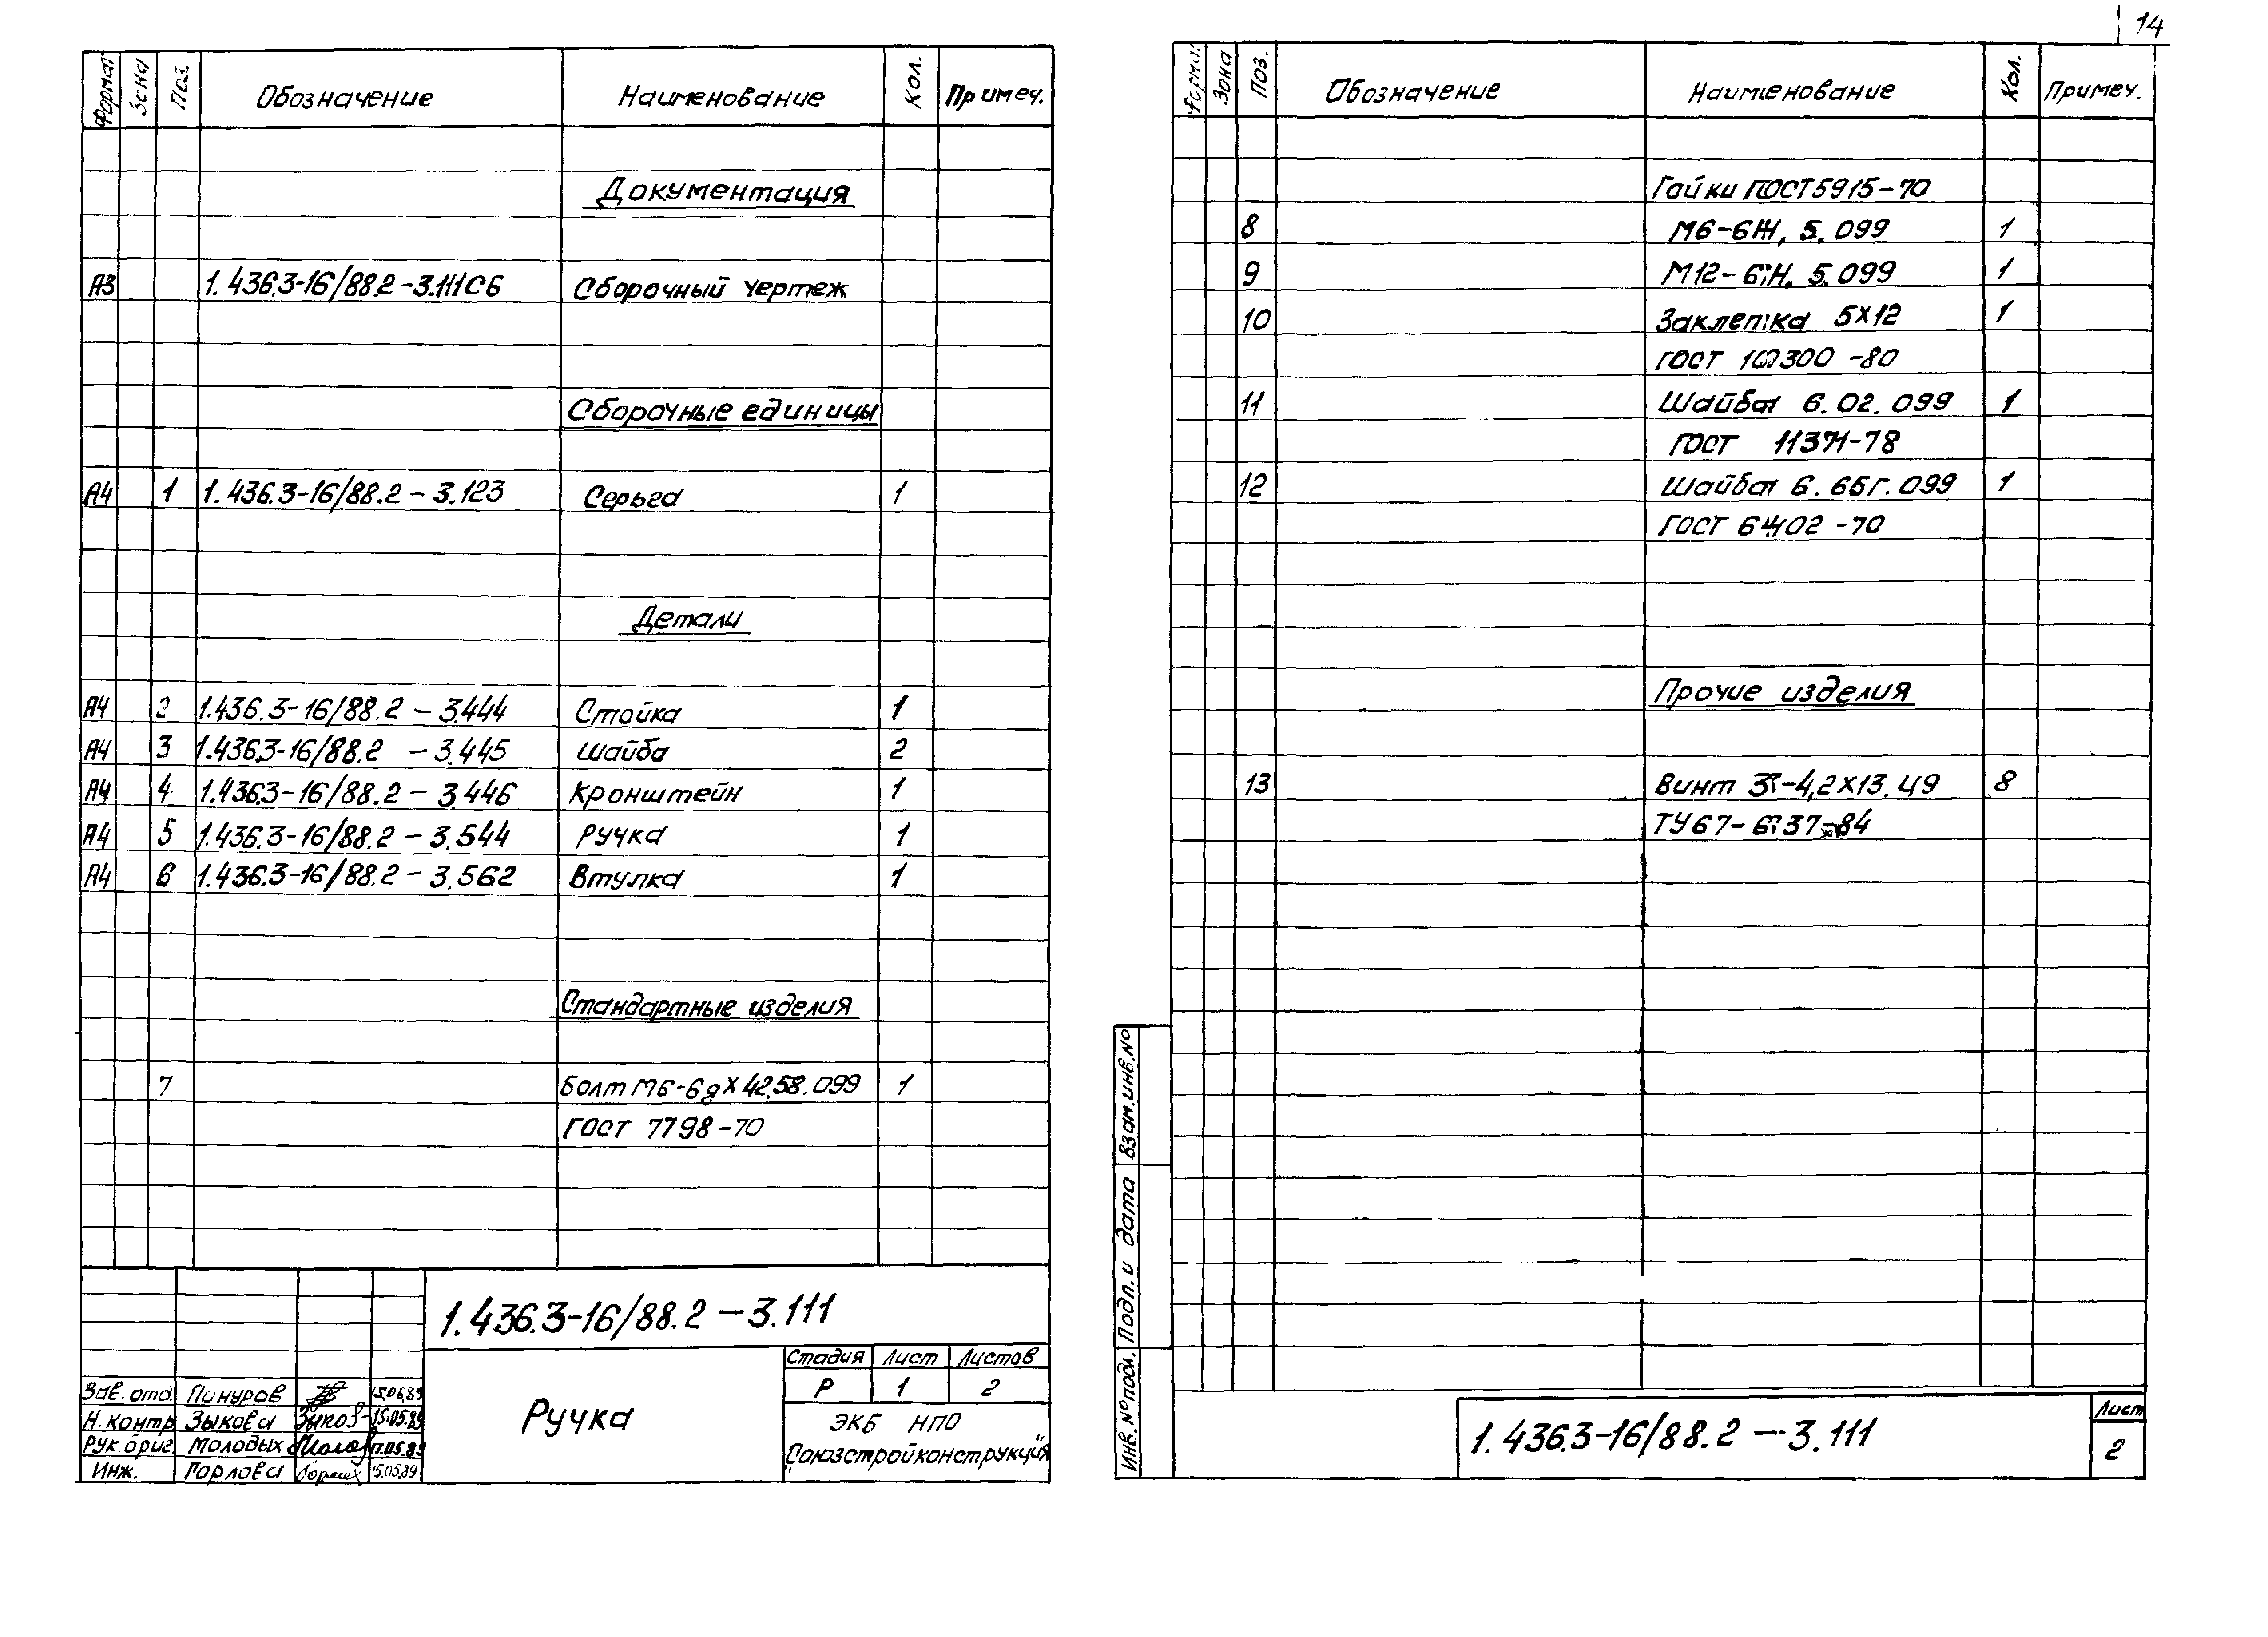 14
Формат Зона Поз. Обозначение Наименование Кол. Примеч.
Документация
А3 1.436.3-16/88.2-3.111СБ Сборочный чертеж
Сборочные единицы
А4 1 1.436.3-16/88.2-3.123 Серьга 1
Детали
А4 2 1.436.3-16/88.2-3.444 Стойка 1
А4 3 1.436.3-16/88.2-3.445 Шайба 2
А4 4 1.436.3-16/88.2-3.446 Кронштейн 1
А4 5 1.436.3-16/88.2-3.544 Ручка 1
А4 6 1.436.3-16/88.2-3.562 Втулка 1
Стандартные изделия
7 Болт М6-6gх42.58.099 1
ГОСТ 7798-70
1.436.3-16/88.2-3.111
Стадия Лист Листов
Р 1 2
Ручка
ЭКБ НПО
"Союзстройконструкция"
Зав. отд. Пинуров 15.06.89
Н. контр. Зыкова 15.05.89
Рук. бриг. Молодых 17.05.89
Инж. Горлова 15.05.89
Формат Зона Поз. Обозначение Наименование Кол. Примеч.
Гайки ГОСТ 5915-70
8 М6-6Н.5.099 1
9 М12-6Н.5.099 1
10 Заклепка 5х12 1
ГОСТ 10300-80
11 Шайба 6.02.099 1
ГОСТ 11371-78
12 Шайба 6.65Г.099 1
ГОСТ 6402-70
Прочие изделия
13 Винт -4,2х13.Ц9 8
ТУ67-
Взам.инв.№
Подп. и дата
Инв.№подл.
1.436.3-16/88.2-3.111
Лист
2